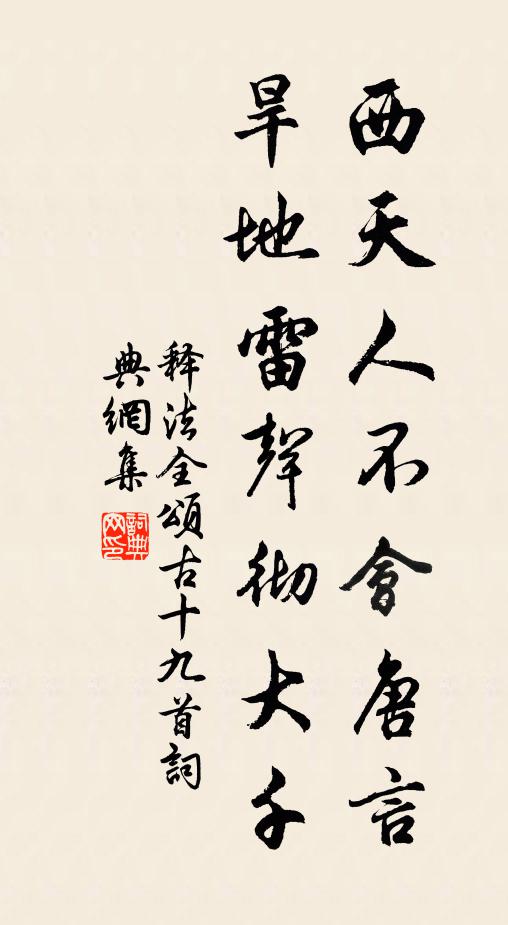 西天人不會唐言
旱地雷聲彻大千
释法全頌古十九首詞
典網集
詞典
网印